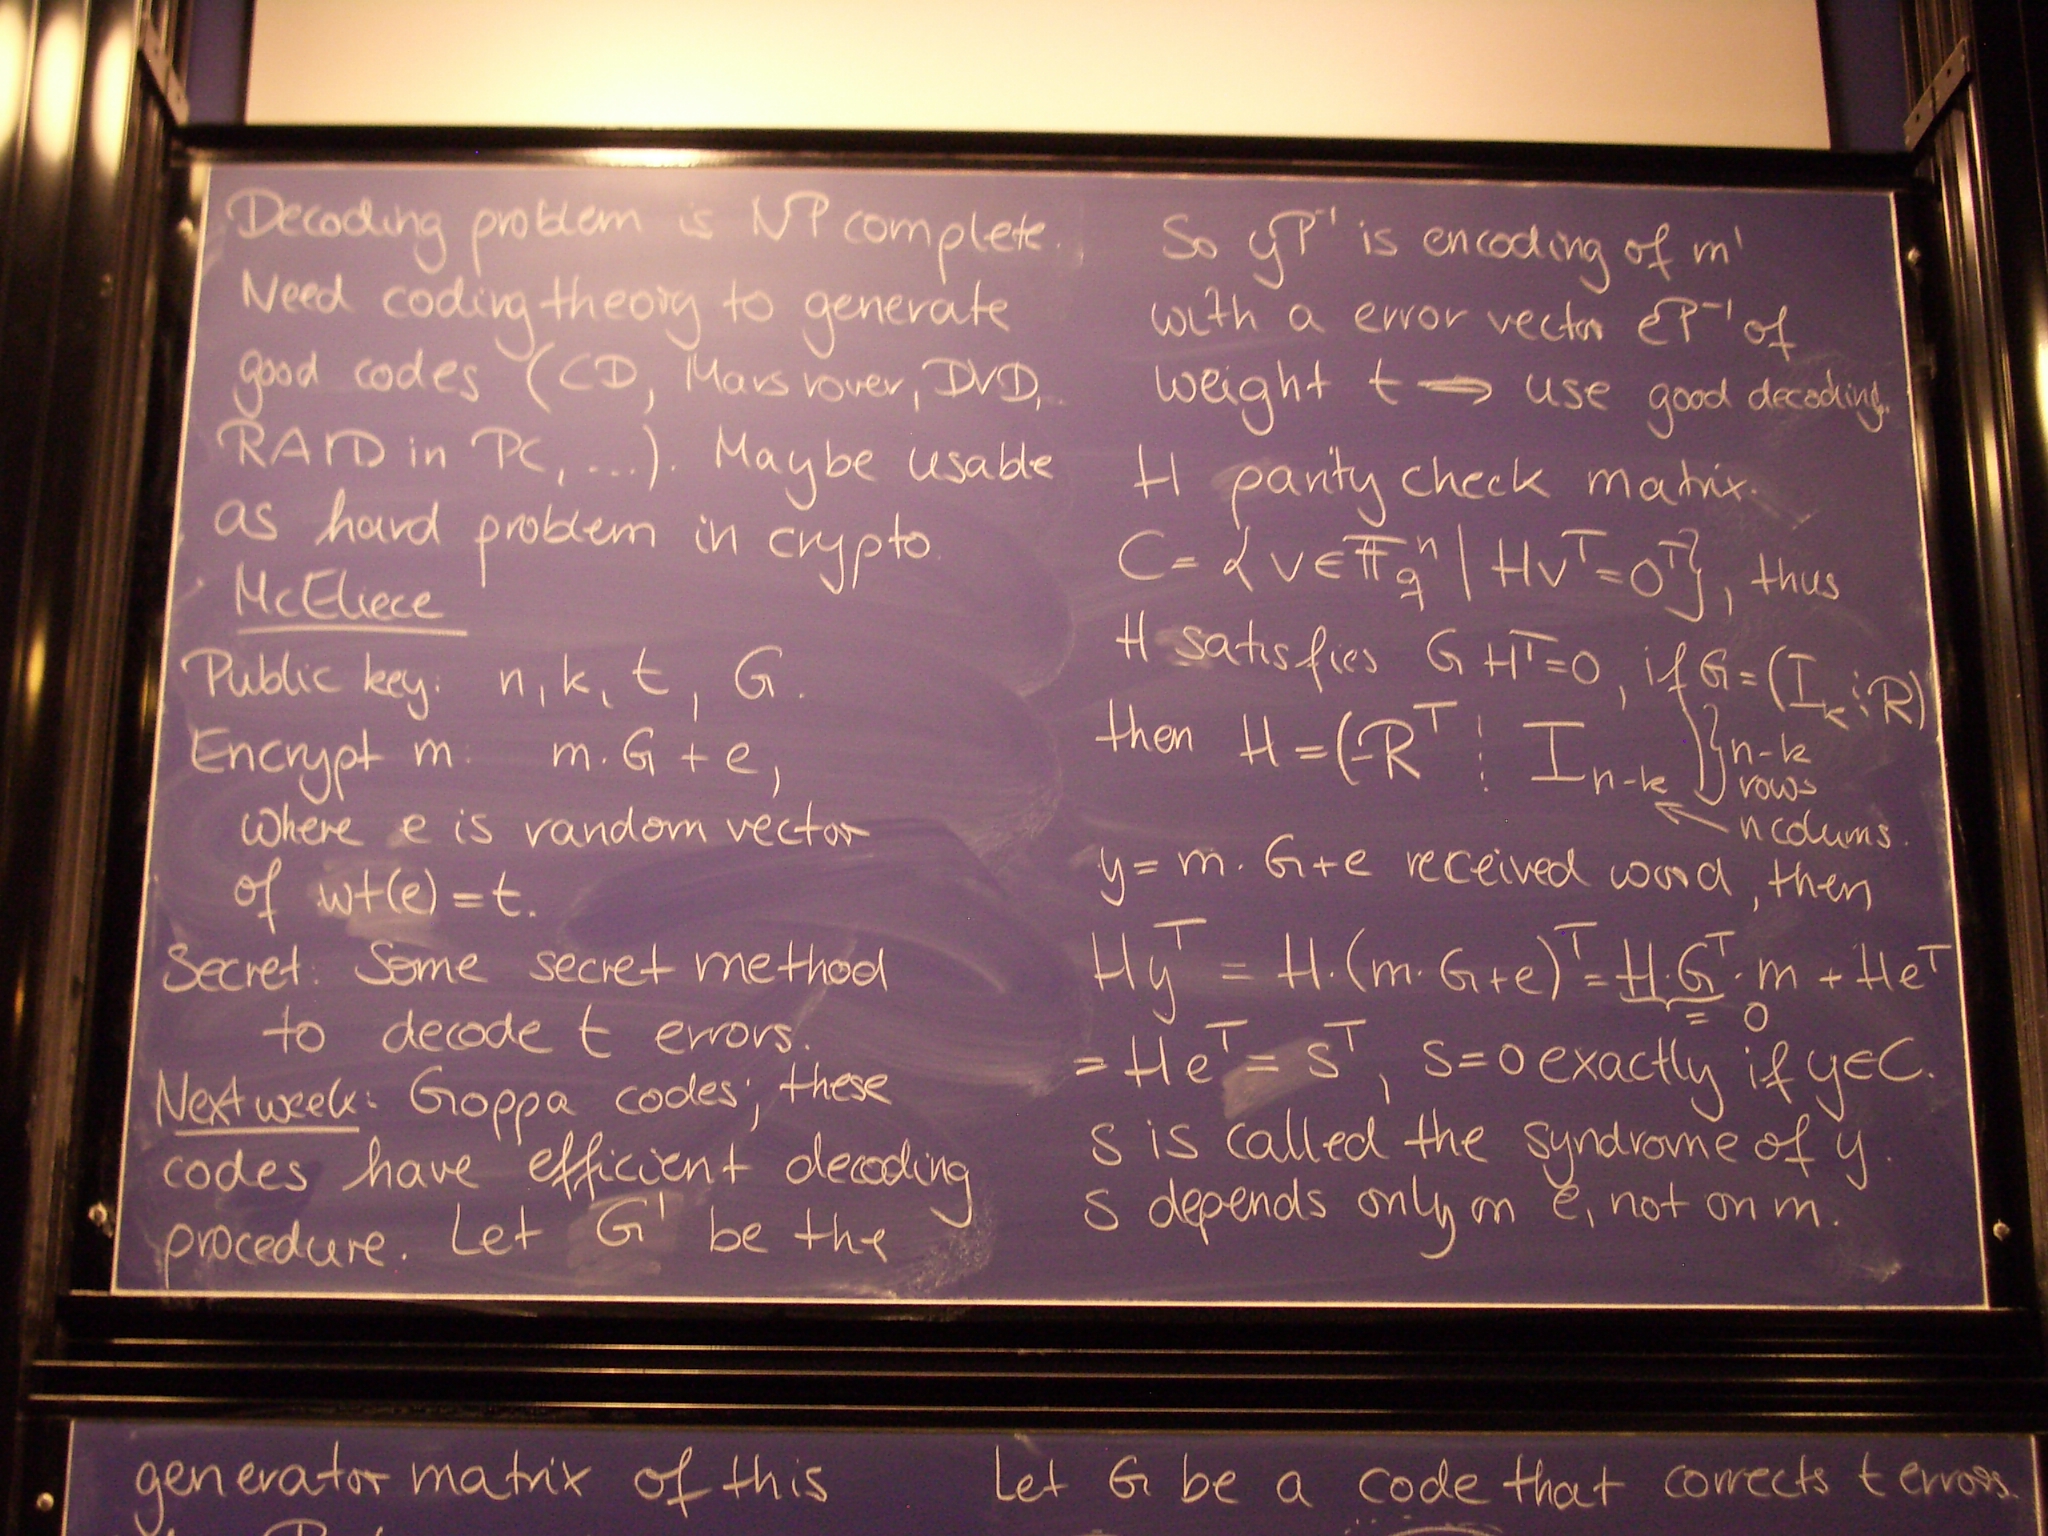 Decoding problem is NP complete.
Need coding theory to generate
good codes (CD, Mars rover, DVD,
RAID in PC, ...). Maybe usable
as hard problem in crypto.
McEliece
Public key: n, k, t, G.
Encrypt m: m·G + e,
where e is random vector
of wt(e) = t.
Secret: Some secret method
to decode t errors.
Next week: Goppa codes; these
codes have efficient decoding
procedure. Let G' be the
So yP⁻¹ is encoding of m'
with a error vector eP⁻¹ of
weight t ⇒ use good decoding.
H parity check matrix.
C = {v ∈ 𝔽_q^n | Hv^T = 0^T}, thus
H satisfies G H^T = 0, if G = (I_k ⋮ R)
then H = (-R^T ⋮ I_{n-k}) } n-k
rows
n colums.
y = m·G+e received word, then
Hy^T = H·(m·G+e)^T = H·G^T·m + He^T
= 0
= He^T = s^T, s=0 exactly if y∈C.
s is called the syndrome of y.
s depends only on e, not on m.
generator matrix of this
Let G be a code that corrects t errors.